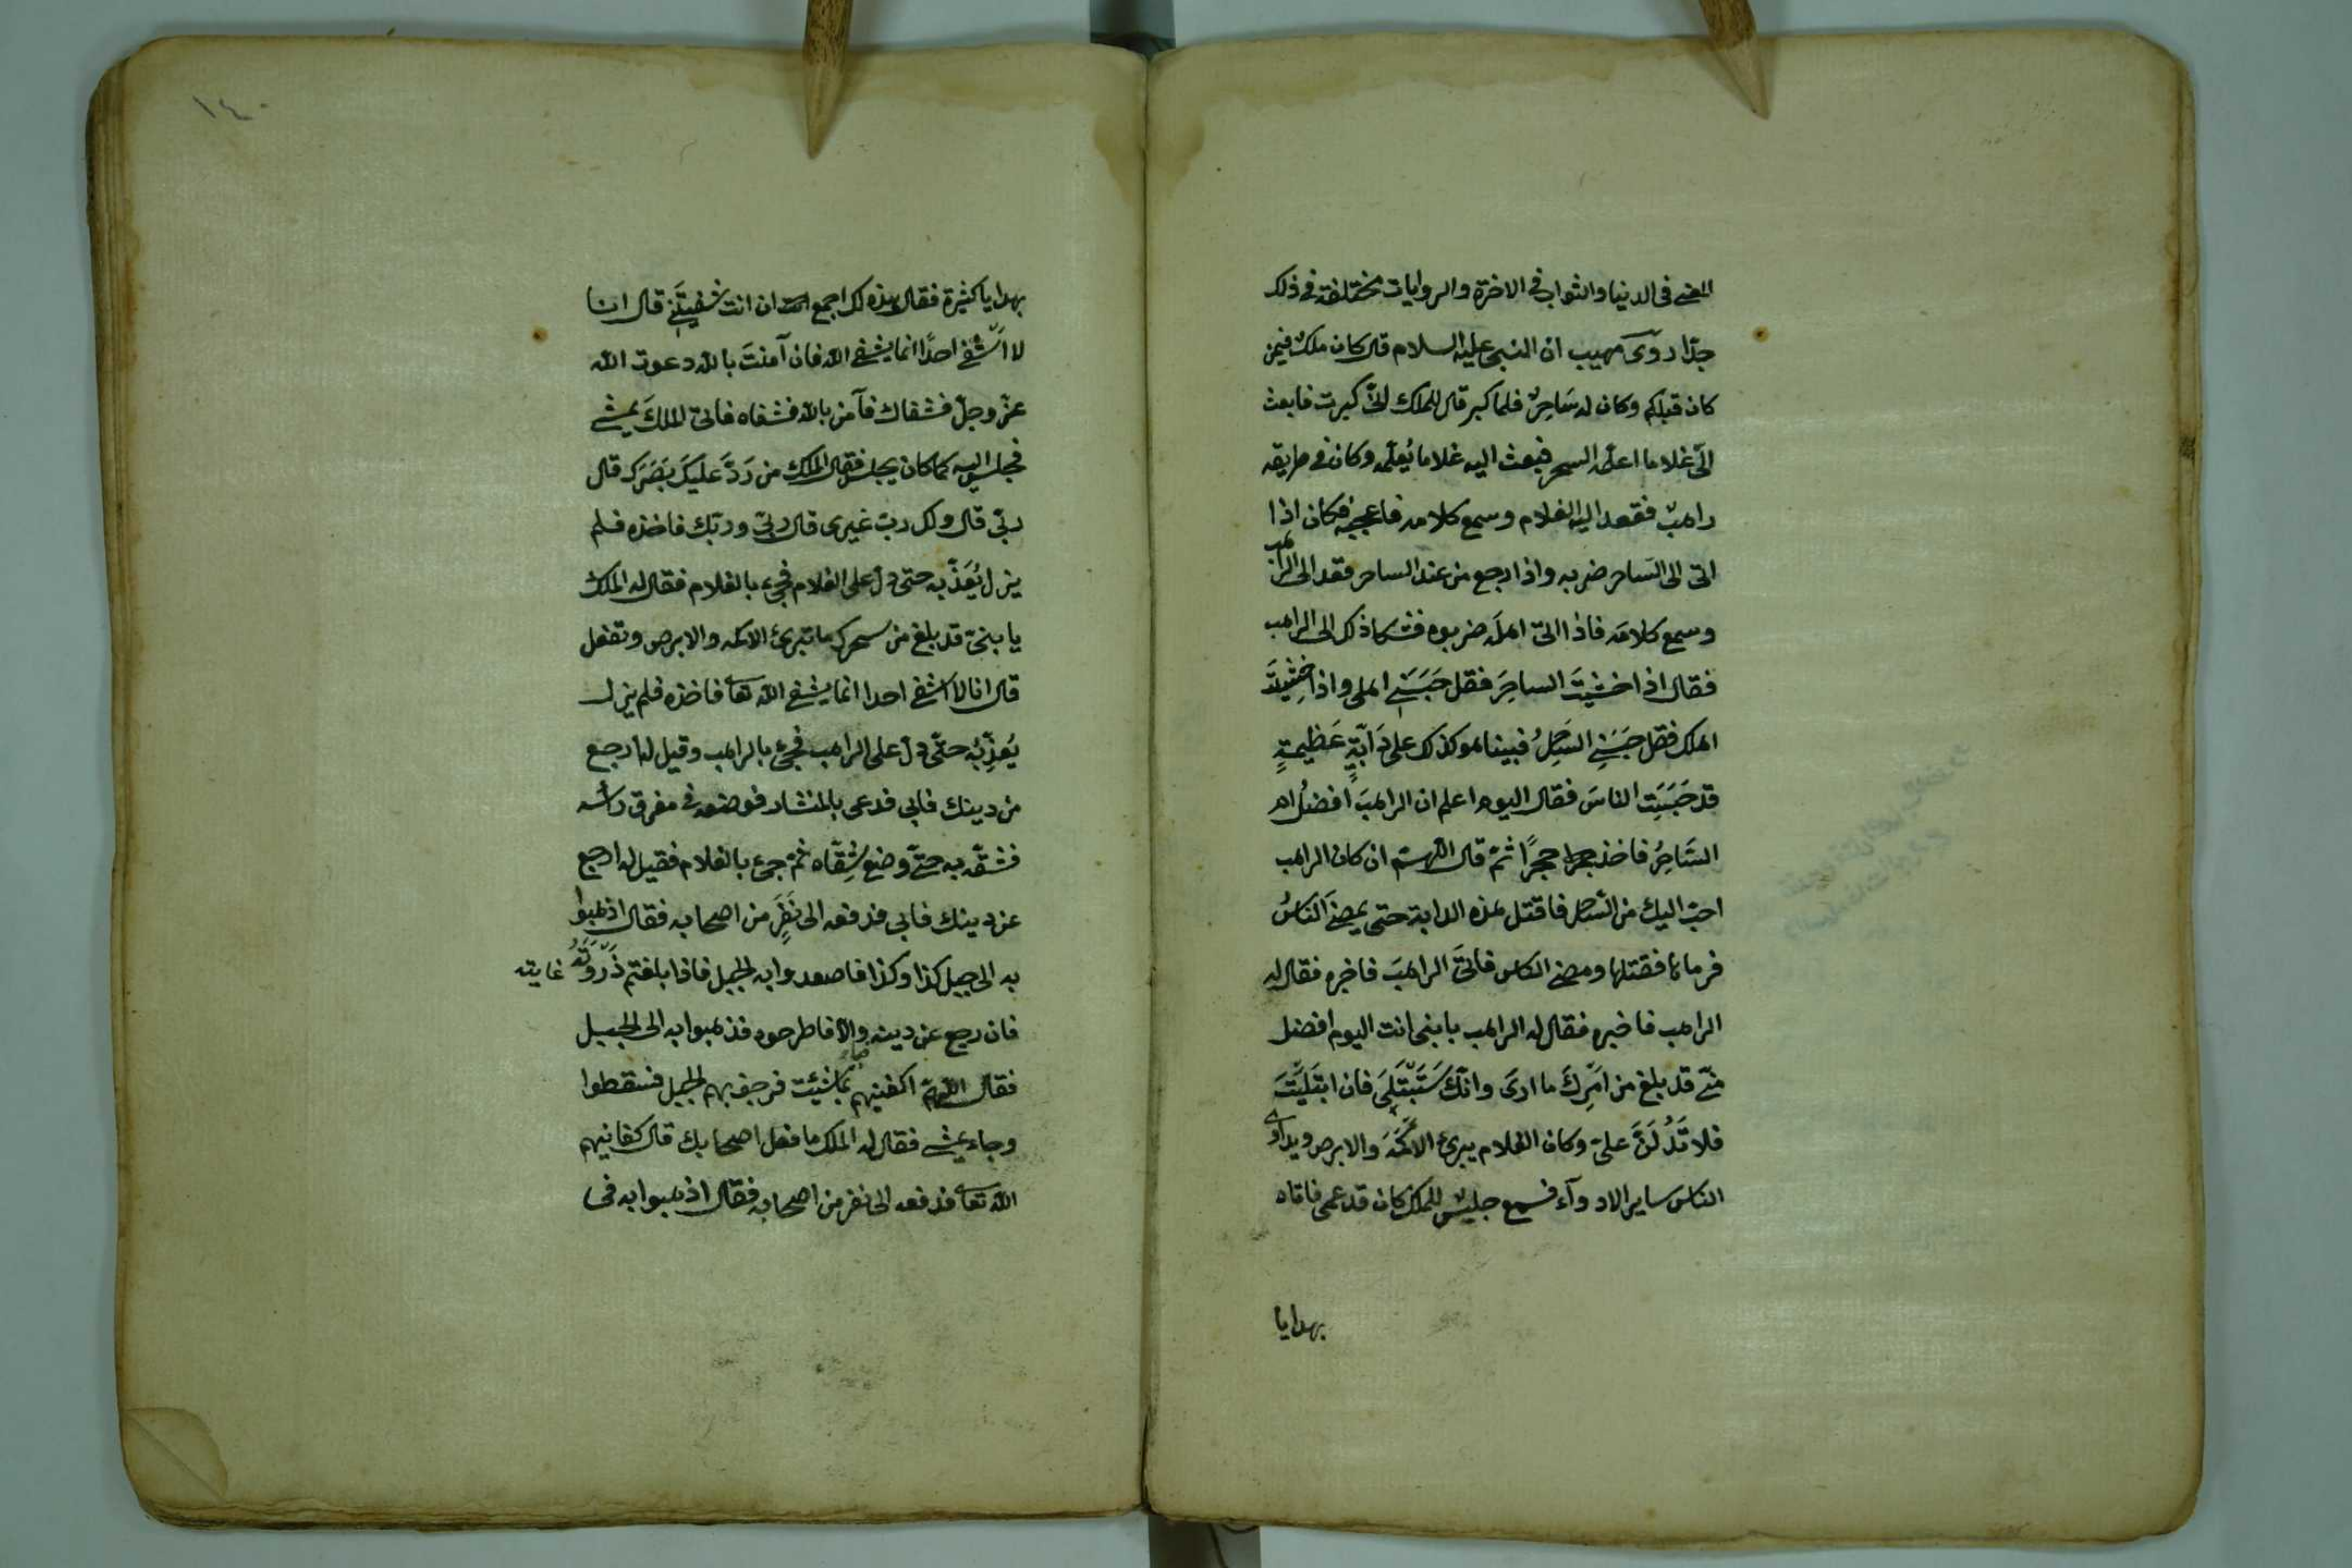 المضى فى الدنيا والثواب فى الاخرة والروايات مختلفة فى ذلك
جدّا روىَ صهيب ان النبى عليه السلام قال كان ملكٌ فيمن
كان قبلكم وكان له سَاحِرٌ فلما كبر قال للملك انّى كبرت فابعث
الىّ غلاما اعلّمه السحر فبعث اليه غلاما يُعلّمه وكان فى طريقه
راهبٌ فقعد اليه الغلام وسمع كلامه فاعجبه فكان اذا
اتى الى السَاحر ضربه واذا رجع من عند الساحر قعد الى الراهب
وسمع كلامَه فاذا اتىَ اهلَه ضربوه فشكا ذلك الى الراهب
فقال اذا خشيتَ الساحِرَ فقل حَبَسَنِى اهلى واذا خشِيتَ
اهلك فقل حبَسَنِى السَاحِرُ فبينا هو كذلك على دَابّةٍ عَظِيمةٍ
قد حَبَسَتِ الناسَ فقال اليوم اعلم ان الراهبَ افضلُ ام
السَّاحِرُ فاخذ حجرا حجرًا ثمّ قال اللهمّ ان كان الراهب
احبّ اليك من الساحر فاقتل هذه الدابة حتى يمضىَ الناسُ
فرماها فقتلها ومضى الناس فاتىَ الراهبَ فاخبره فقال له
الراهب فاخبره فقال له الراهب يا بنى انت اليوم افضل
منّى قد بلغ من امرِكَ ما ارىَ وانّك سَتُبْتَلىَ فان ابتَلِيْتَ
فلا تَدُلَنَّ علىّ وكان الغلام يبرئ الاكْمَهَ والابرص ويداوى
الناس ساير الادوآء فسمع جليسٌ للملك كان قد عمى فاتاه
بهدايا
١٤٠
بهدايا كثيرة فقال هذه لك اجمع ان انت شفيتَنِى قال انا
لا اَشْفى احدًا انما يشفى الله فان آمنتَ بالله دعوت الله
عزّ وجلّ فشفاك فآمن بالله فشفاه فاتى الملكَ يمشى
فجلس اليه كما كان يجلس فقال الملك من رَدَّ عليكَ بَصَرَك قال
ربّى قال ولك ربٌ غيرى قال ربّى وربّك فاخذه فلم
يزل يُعَذّبه حتى دلّ على الغلام فجىء بالغلام فقال له الملك
يا بنىّ قد بلغ من سحرك ما تبرئ الاكمه والابرص وتفعل
قال انا لا اشفى احدا انما يشفى الله تعالى فاخذه فلم يزل
يُعَذِّبُه حتّى دلّ على الراهب فجىء بالراهب وقيل له ارجع
من دينك فابى فدعى بالمنشار فوضعه فى مفرق رأسه
فشقّه به حتّى وضع شِقّاه ثمّ جىء بالغلام فقيل له ارجع
عن دينك فابى فدفعه الى نَفَرٍ من اصحابه فقال اذهبوا
به الى جبل كذا وكذا فاصعدوا به الجبل فاذا بلغتم ذَرْوَتَهُ غايته
فان رجع عن دينه والّا فاطرحوه فذهبوا به الى الجبل
فقال اللهمّ اكفنيهم بما شئت فرجف بهم الجبل فسقطوا
وجاء يمشى فقال له الملك ما فعل اصحابك قال كفانيهم
الله تعالى فدفعه الى نفر من اصحابه فقال اذهبوا به فى